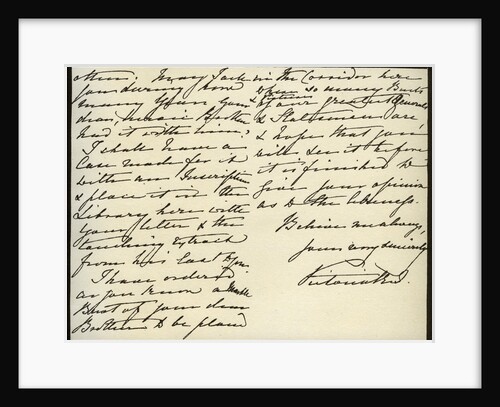 other. May I ask
you during how
many years your
dear, heroic Brother
had it with him?
I shall have a
Case made for it
with an Inscription
& place it in the
Library here with
your letter & the
touching extract
from his last to you.
I have ordered
as you know a Marble
Bust of your dear
Brother to be placed
in the Corridor here
where so many Busts
& Pictures
of our greatest Generals
& Statesmen are,
& hope that you
will see it before
it is finished to
give your opinion
as to the likeness.
Believe me always,
yours very sincerely
Victoria R.I.